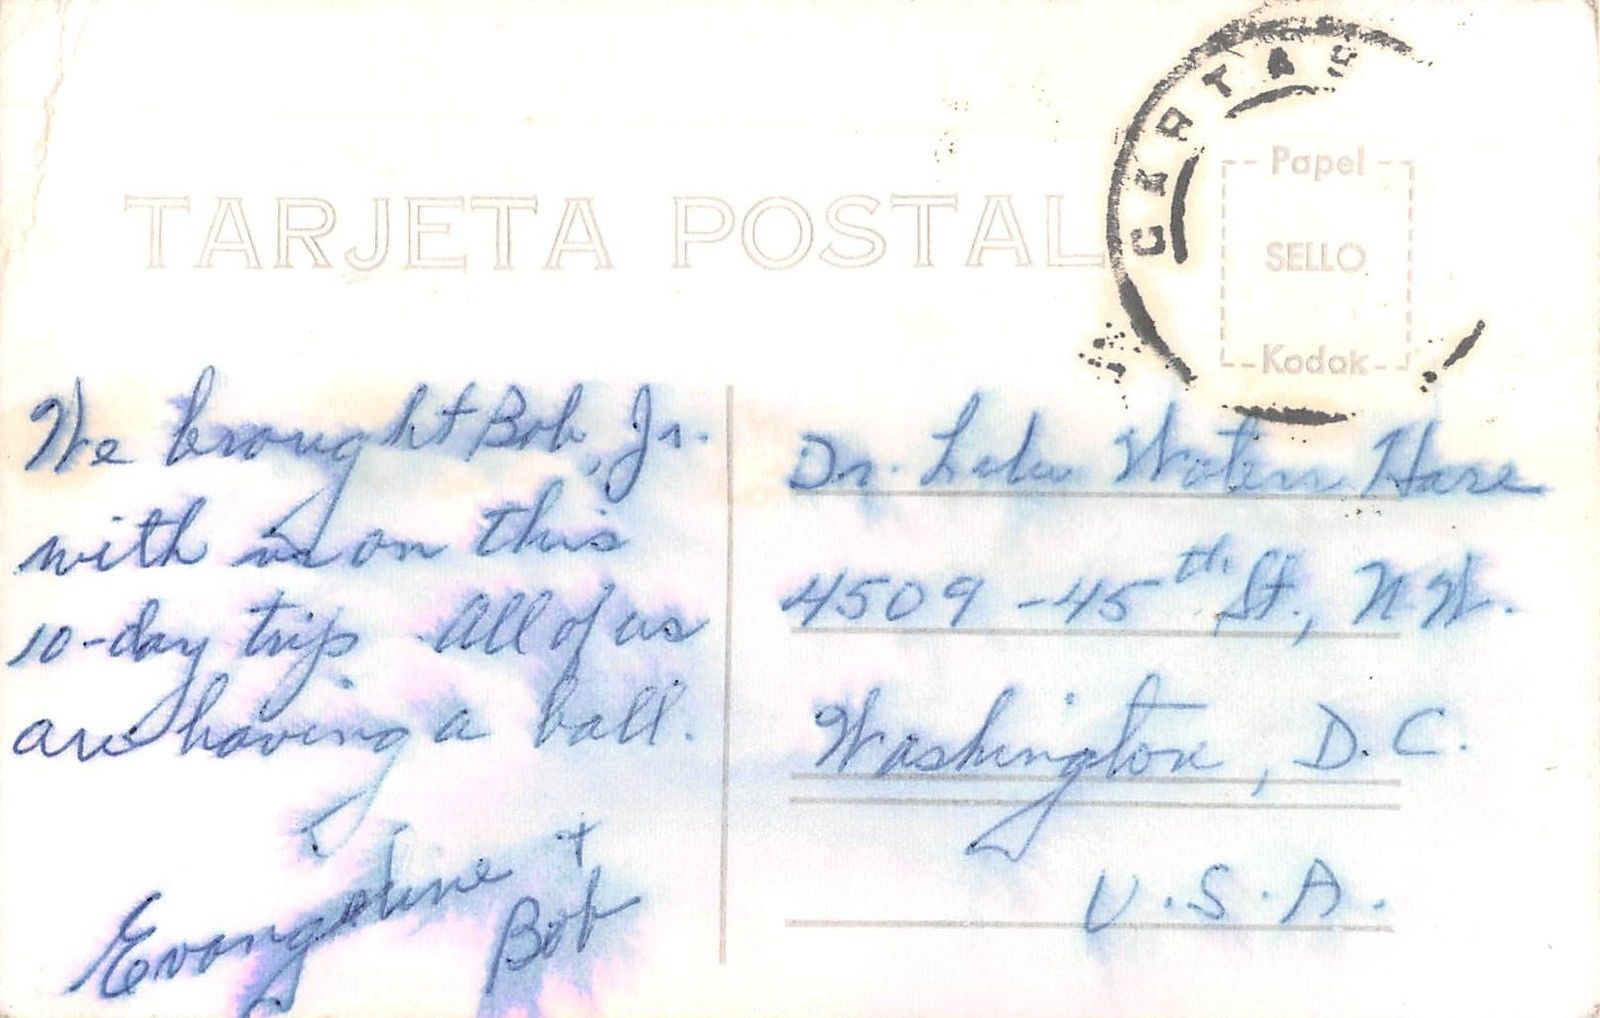 CARTAS
Papel
TARJETA POSTAL
SELLO
Kodak
We brought Bob, Jr.
with us on this
10-day trip. All of us
are having a ball.
Evangeline +
Bob
Dr. Waters Hare
4509 - 45th St., N.W.
Washington, D.C.
U.S.A.